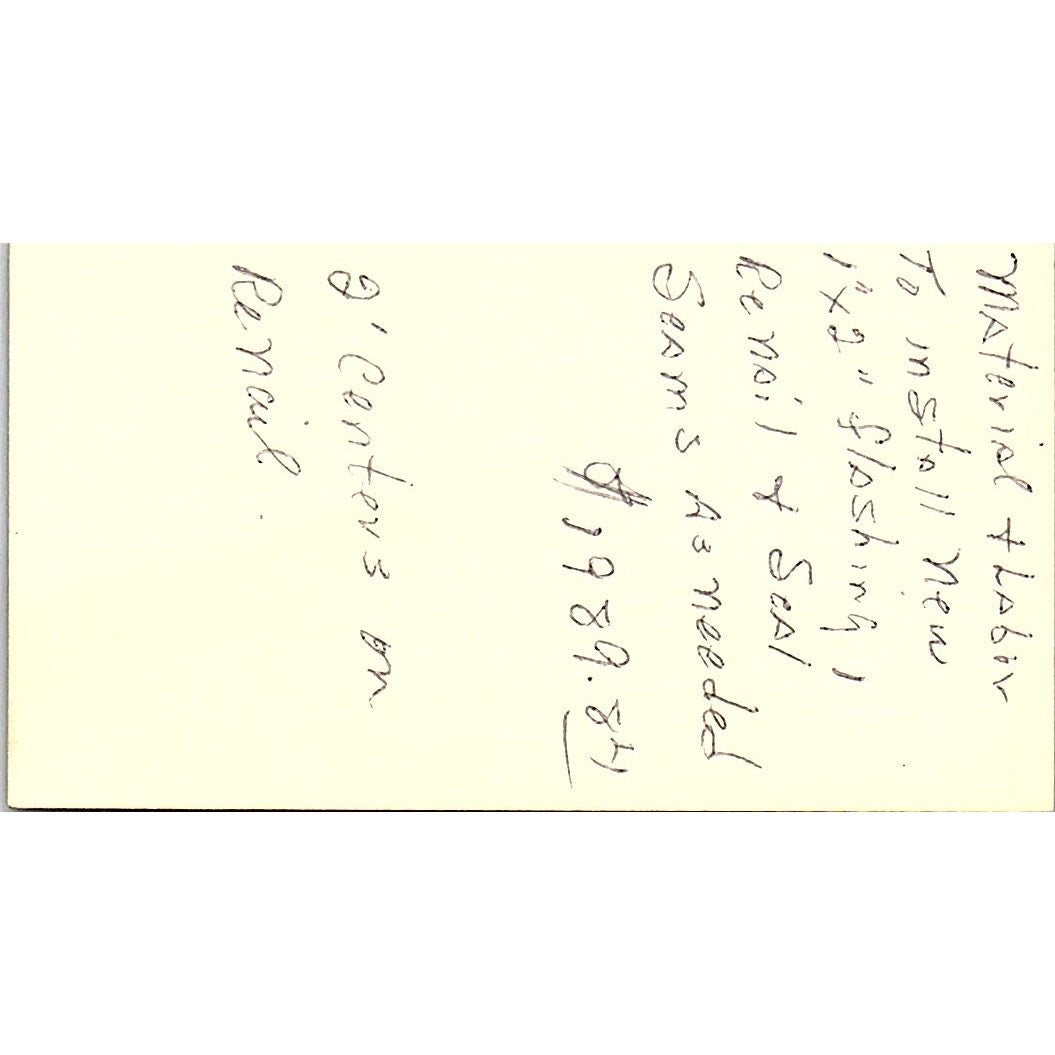 Material + Labor
To install new
1"x2" flashing,
Renail & Seal
Seams As needed
$1,989.84
2' Centers on
Renail